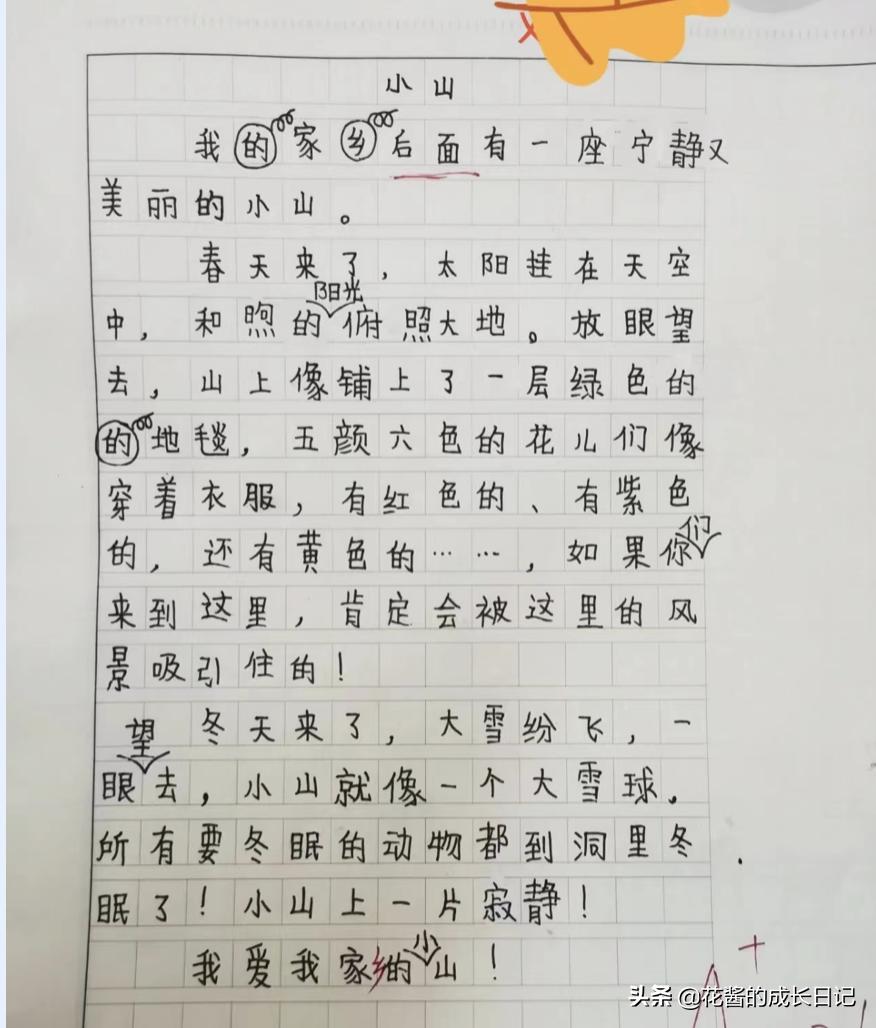 小山
我的家乡后面有一座宁静又
美丽的小山。
春天来了，太阳挂在天空
中，和煦的阳光俯照大地。放眼望
去，山上像铺上了一层绿色的
的地毯，五颜六色的花儿们像
穿着衣服，有红色的、有紫色
的，还有黄色的……，如果你们
来到这里，肯定会被这里的风
景吸引住的！
冬天来了，大雪纷飞，一
眼望去，小山就像一个大雪球。
所有要冬眠的动物都到洞里冬
眠了！小山上一片寂静！
我爱我家乡的小山！
头条 @花酱的成长日记